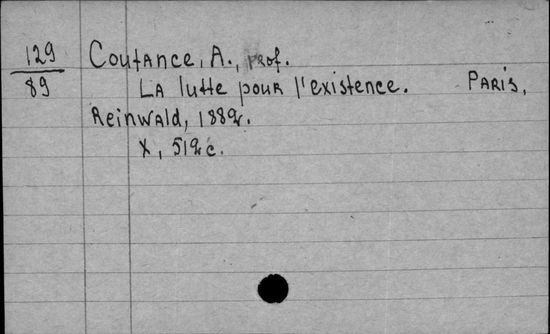 129
89
Coutance, A., Prof.
La lutte pour l'existence. Paris,
Reinwald, 1882.
X, 512 c.